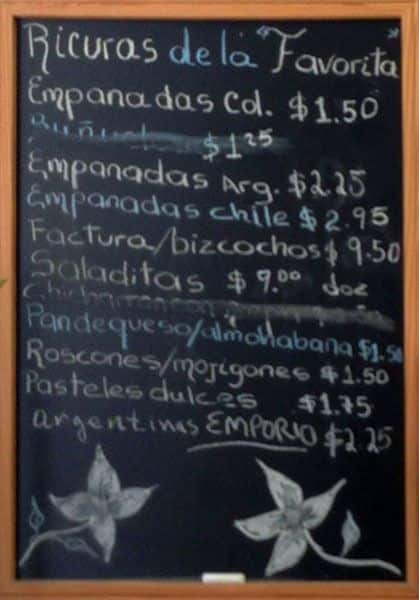 Ricuras de la "Favorita"
Empanadas Col. $1.50
$1.25
Empanadas Arg. $2.25
Empanadas chile $2.95
Factura/bizcochos $9.50
Saladitas $9.00 doz
Pandequeso/almohabana $1.50
Roscones/mojigones $1.50
Pasteles dulces $1.75
argentinas EMPORIO $2.25